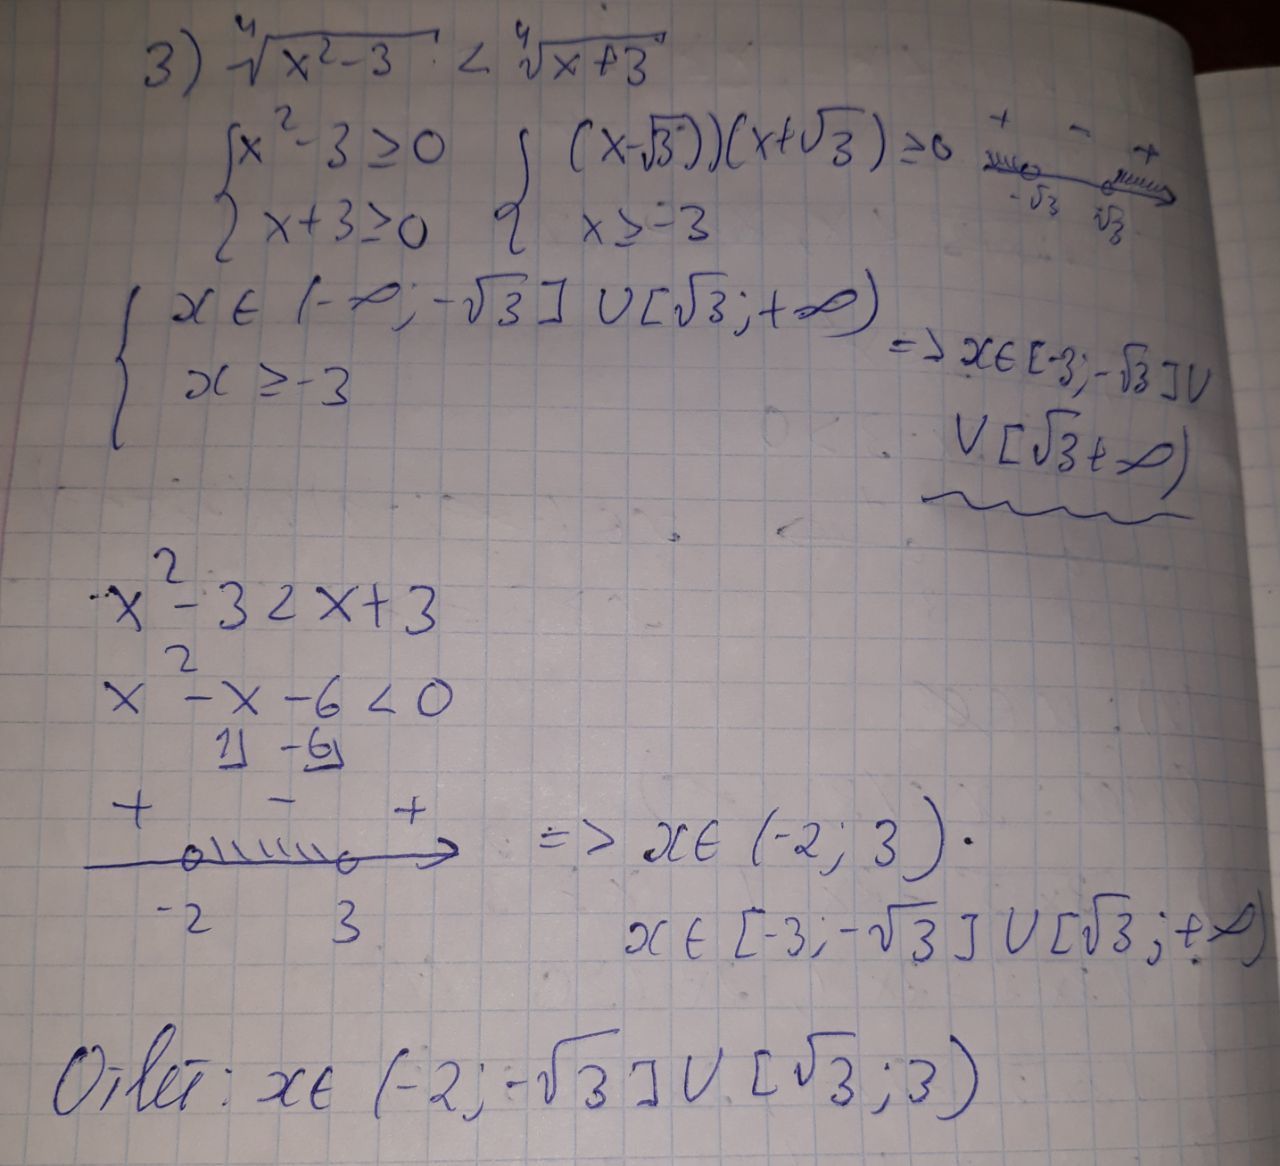 3) ⁴√(x²-3) < ⁴√(x+3)
{ x²-3≥0 { (x-√3))(x+√3)≥0 + - +
x+3≥0 x≥-3 -√3 √3
{ x∈(-∞;-√3]∪[√3;+∞)
x≥-3 => x∈[-3;-√3]∪
∪[√3+∞)
x²-3<x+3
x²-x-6<0
1 -6
+ - +
=> x∈(-2;3).
-2 3
x∈[-3;-√3]∪[√3;+∞)
Ответ: x∈(-2;-√3]∪[√3;3)